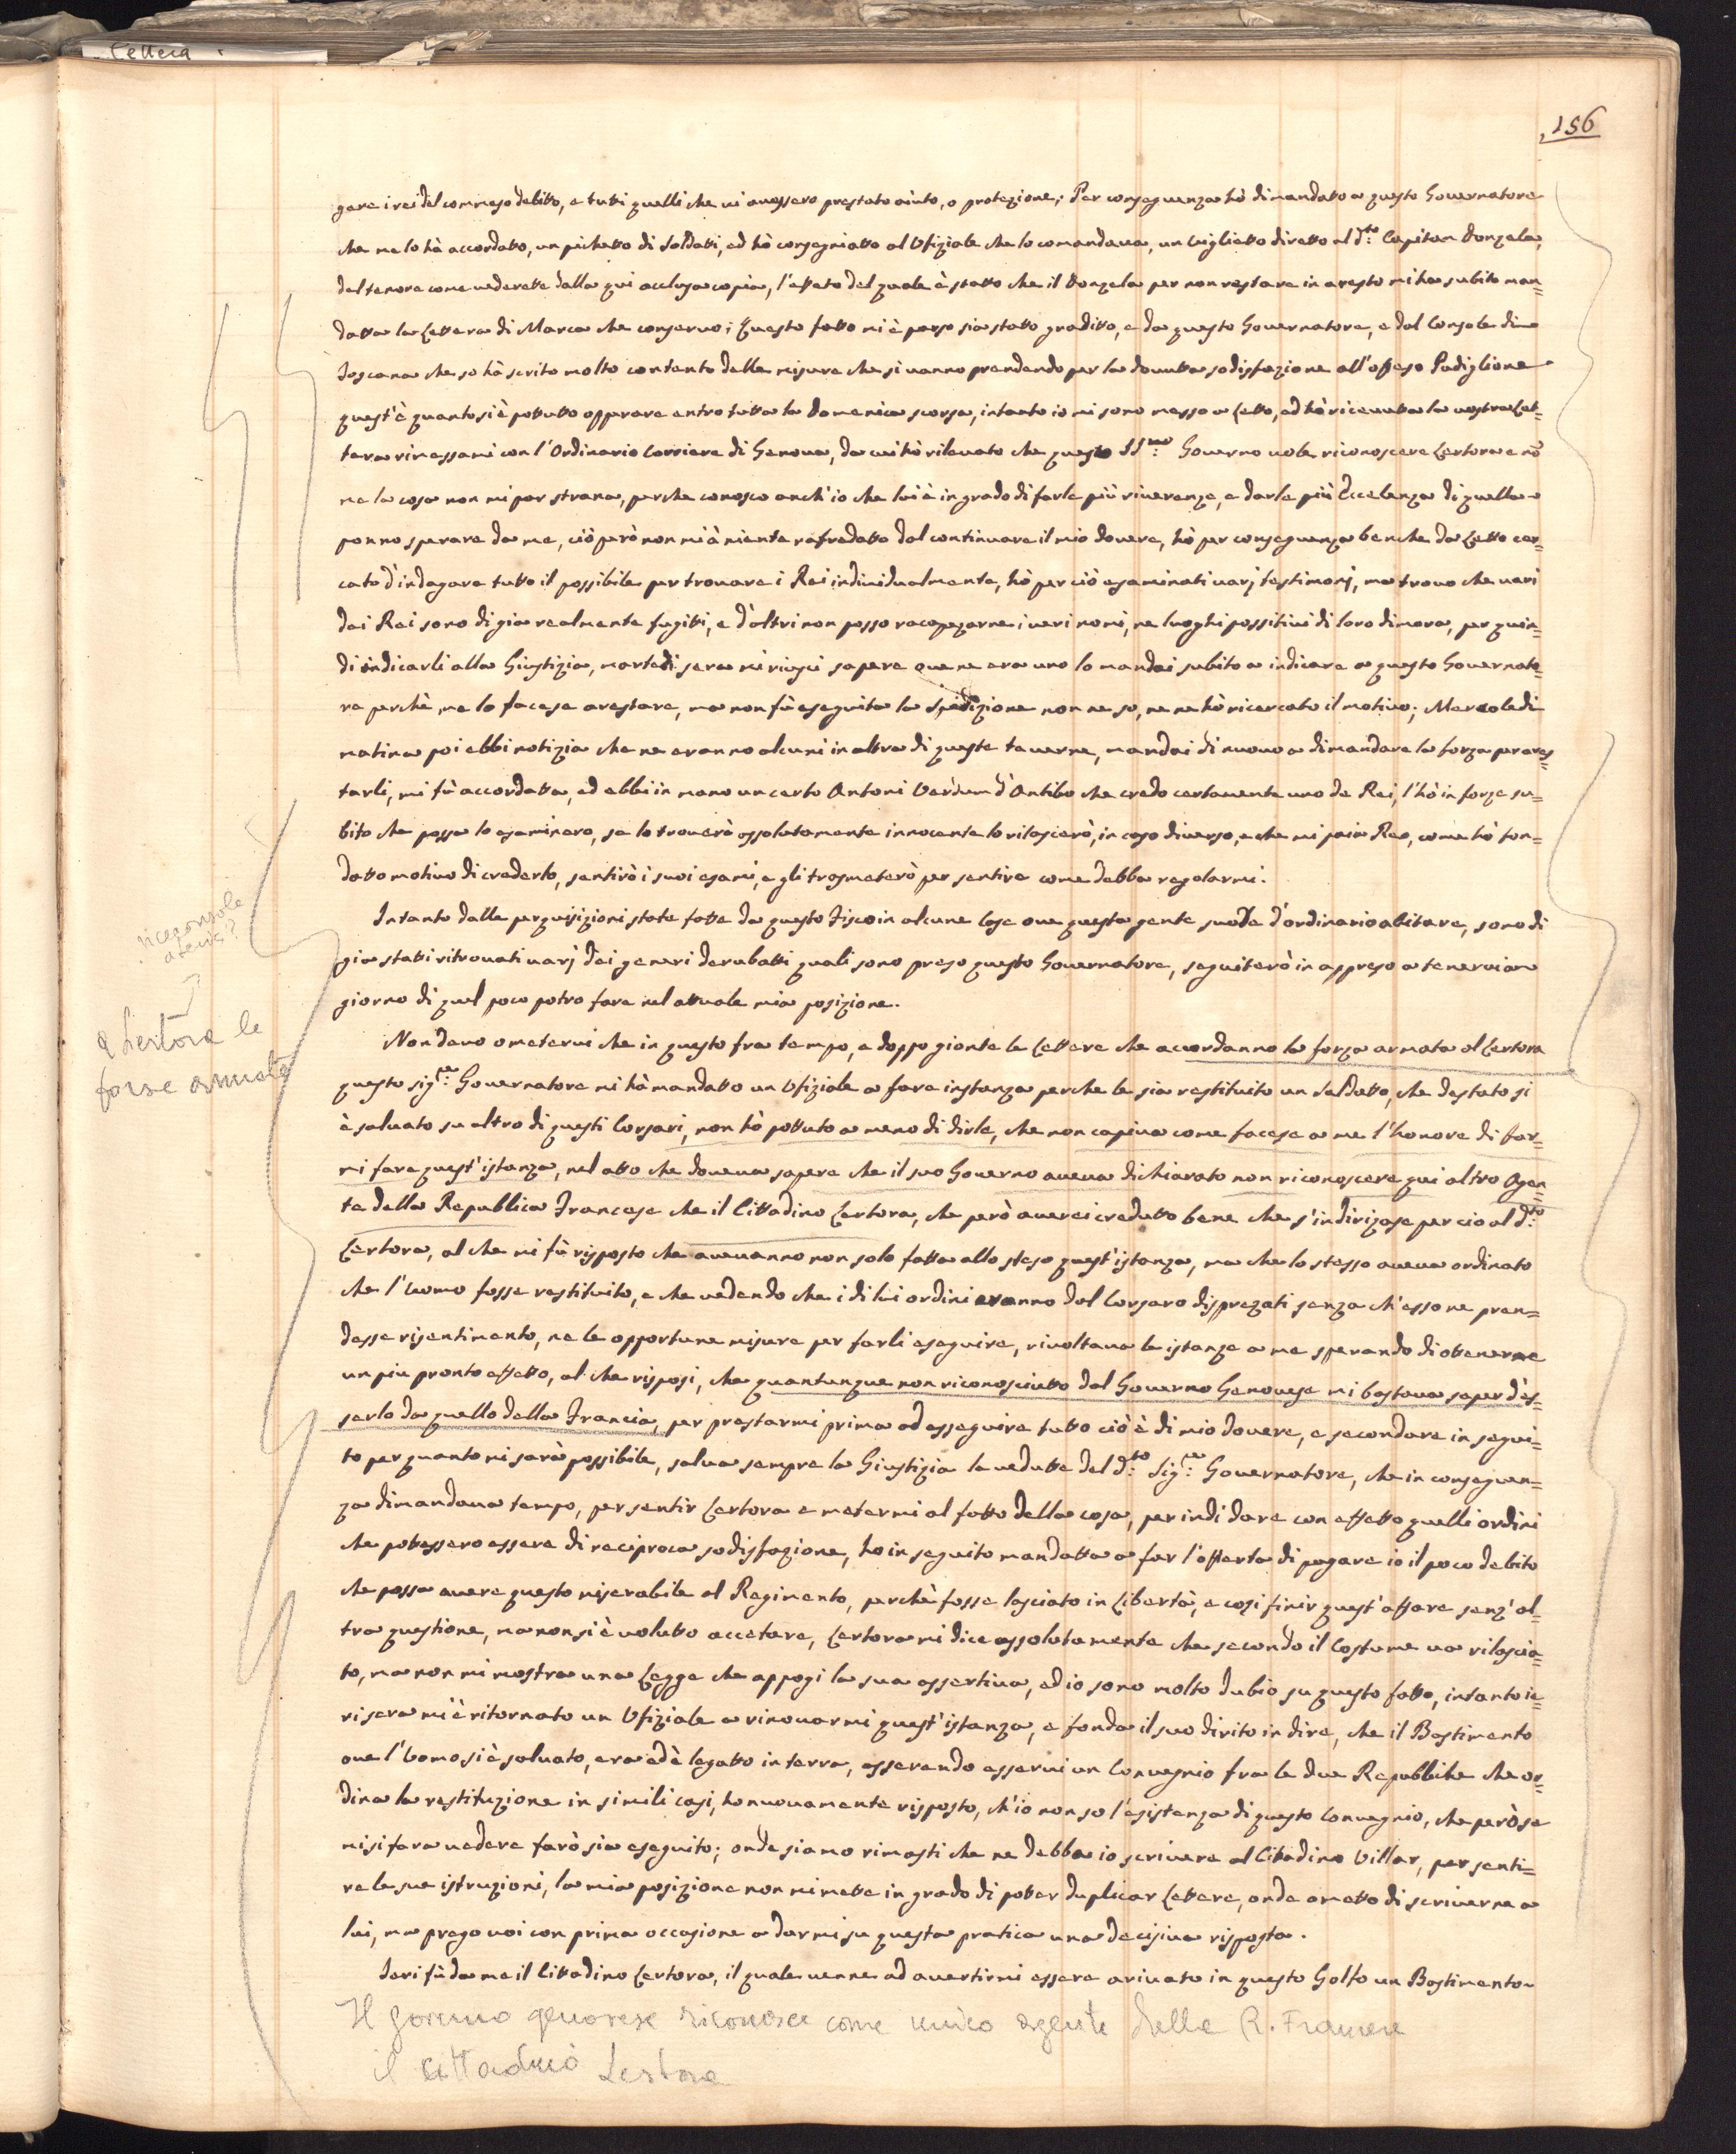 Lettera
156
gare i rei del commeso delitto, e tutti quelli che vi avessero prestato aiuto, o protezione; Per conseguenza hò dimandatto a questo Governatore
che me lo hà accordatto, un pichetto di Soldatti, ed hò consegniatto al Ufiziale che lo comandava, un viglietto diretto al d.to Capitan Donzela,
del tenore come vederette dalla qui acclusa copia, l'effeto del quale è statto che il Donzela per non restare in aresto mi ha subito man=
datta la Lettera di Marca che conservo; Questo fatto mi è parso sia statto graditto, e da questo Governatore, e dal Console di
Toscana che so hà scrito molto contento delle misure che si vanno prendendo per la dovutta sodisfazione all'offeso Padiglione
quest'è quanto si è pottutto opperare entro tutta la Domenica scorsa, intanto io mi sono messo a Letto, ed hò ricevutta la vostra Let=
tera rimessami con l'Ordinario Corriere di Genova, da cui hò rilevato che questo SS.mo Governo vole riconoscere Certora e nò
me la cosa non mi par strana, perche conosco anch'io che lui è in grado di farle più riverenze, e darle più Eccelenza di quella
ponno sperare da me, ciò però non mi à niente rafredatto dal continuare il mio dovere, hò per conseguenza benche da Letto cer=
cato d'indagare tutto il possibile per trovare i Rei individualmente, hò per ciò esaminati varj testimonj, ma trovo che vari
dei Rei sono di gia realmente fugitti, e d'altri non posso racapezarne i veri nomi, ne luoghi possitivi di loro dimora, per quin=
di indicarli alla Giustizia, martedi sera mi riusci sapere ove ne era uno lo mandai subito a indicare a questo Governato=
re perchè me lo facese arestare, ma non fù eseguita la Spedizione non ne so, ne ne hò ricercato il motivo; Mercoledi
matina poi ebbi notizia che ne eranno alcuni in altra di queste taverne, mandai di nuovo a dimandare la forza per ares=
tarli, mi fù accordatta, ed ebbi in mano un certo Antoni Verdum d'Antibo che credo certamente uno de Rei, l'hò in forze su=
bito che possa lo esaminero, se lo troverò assolutamente innocente lo rilascierò, in caso diverso, e che mi paia Reo, come hò fon=
datto motivo di crederlo, sentirò i suoi esami, e gli trasmeterò per sentire come debba regolarmi.
Intanto dalle perquisizioni state fatte da questo Fisco in alcune Case ove questa gente suole d'ordinario abitare, sono di
gia statti ritrovati varj dei generi derubatti quali sono preso questo Governatore, seguiterò in appreso a tenervi a
giorno di quel poco potro fare nel attuale mia posizione.
Non devo ometervi che in questo fra tempo, e doppo gionte le Lettere che accordanno la forza armata al Certora
questo sig.re Governatore mi hà mandatto un Ufiziale a fare instanza perche le sia restituito un Soldatto, che destato si
è salvato su altro di questi Corsari, non hò pottuto a meno di dirle, che non capiva come facese a me l'honore di far=
mi fare quest'istanza, nel atto che doveva sapere che il suo Governo aveva dichiarato non riconoscere qui altro Agen=
te della Republica Francese che il Cittadino Certora, che però averei credutto bene che s'indirizase per cio al d.to
Certora, al che mi fù risposto che avevanno non solo fatta allo steso quest'istanza, ma che lo stesso aveva ordinato
che l'Uomo fosse restituito, e che vedendo che i di lui ordini eranno dal Corsaro disprezati senza ch'esso ne pren=
desse risentimento, ne le opportune misure per farli eseguire, rivoltava le istanze a me sperando di ottenerne
un piu pronto effetto, al che risposi, che quantunque non riconosciutto dal Governo Genovese mi bastava saper d'es=
serlo da quello della Francia, per prestarmi prima ad asseguire tutto ciò è di mio dovere, e secondare in segui=
to per quanto mi sarà possibile, salva sempre la Giustizia la vedutte del d.to Sig.re Governatore, che in conseguen=
za dimandava tempo, per sentir Certora e metermi al fatto della cosa, per indi dare con effetto quelli ordini
che potessero essere di reciproca sodisfazione, ho in seguito mandatto a far l'offerta di pagare io il poco debito
che possa avere questo miserabile al Regimento, perchè fosse lasciato in Libertà, e cosi finir quest'affare senz'al=
tra questione, ma non si è volutto accetare, Certora mi dice assolutamente che secondo il Costume va rilascia=
to, ma non mi mostra una Legge che appogi la sua assertiva, ed io sono molto dubio su questo fatto, intanto ie=
ri sera mi è ritornato un Ufiziale a rinovarmi quest'istanza, e fonda il suo dirito in dire, che il Bastimento
ove l'Uomo si è salvato, era ed è legatto in terra, asserendo esservi un Convegnio fra le due Repubbliche che or=
dina la restituzione in simili casi, ho nuovamente risposto, ch'io non so l'esistenza di questo Convegnio, che però se
mi si fara vedere farò sia eseguito; onde siamo rimasti che ne debba io scrivere al Citadino Villar, per senti=
re le sue istruzioni, la mia posizione non mi mette in grado di potter duplicar Lettere, onde ometto di scriverne a
lui, ma prego voi con prima occasione a darmi su questa pratica una decisiva risposta.
Ieri fù da me il Cittadino Certora, il quale venne ad avertirmi essere arivato in questo Golfo un Bastimento
a Lertora le
forze armate
Il governo genovese riconosce come unico agente della R. Francese
il cittadino Lertora